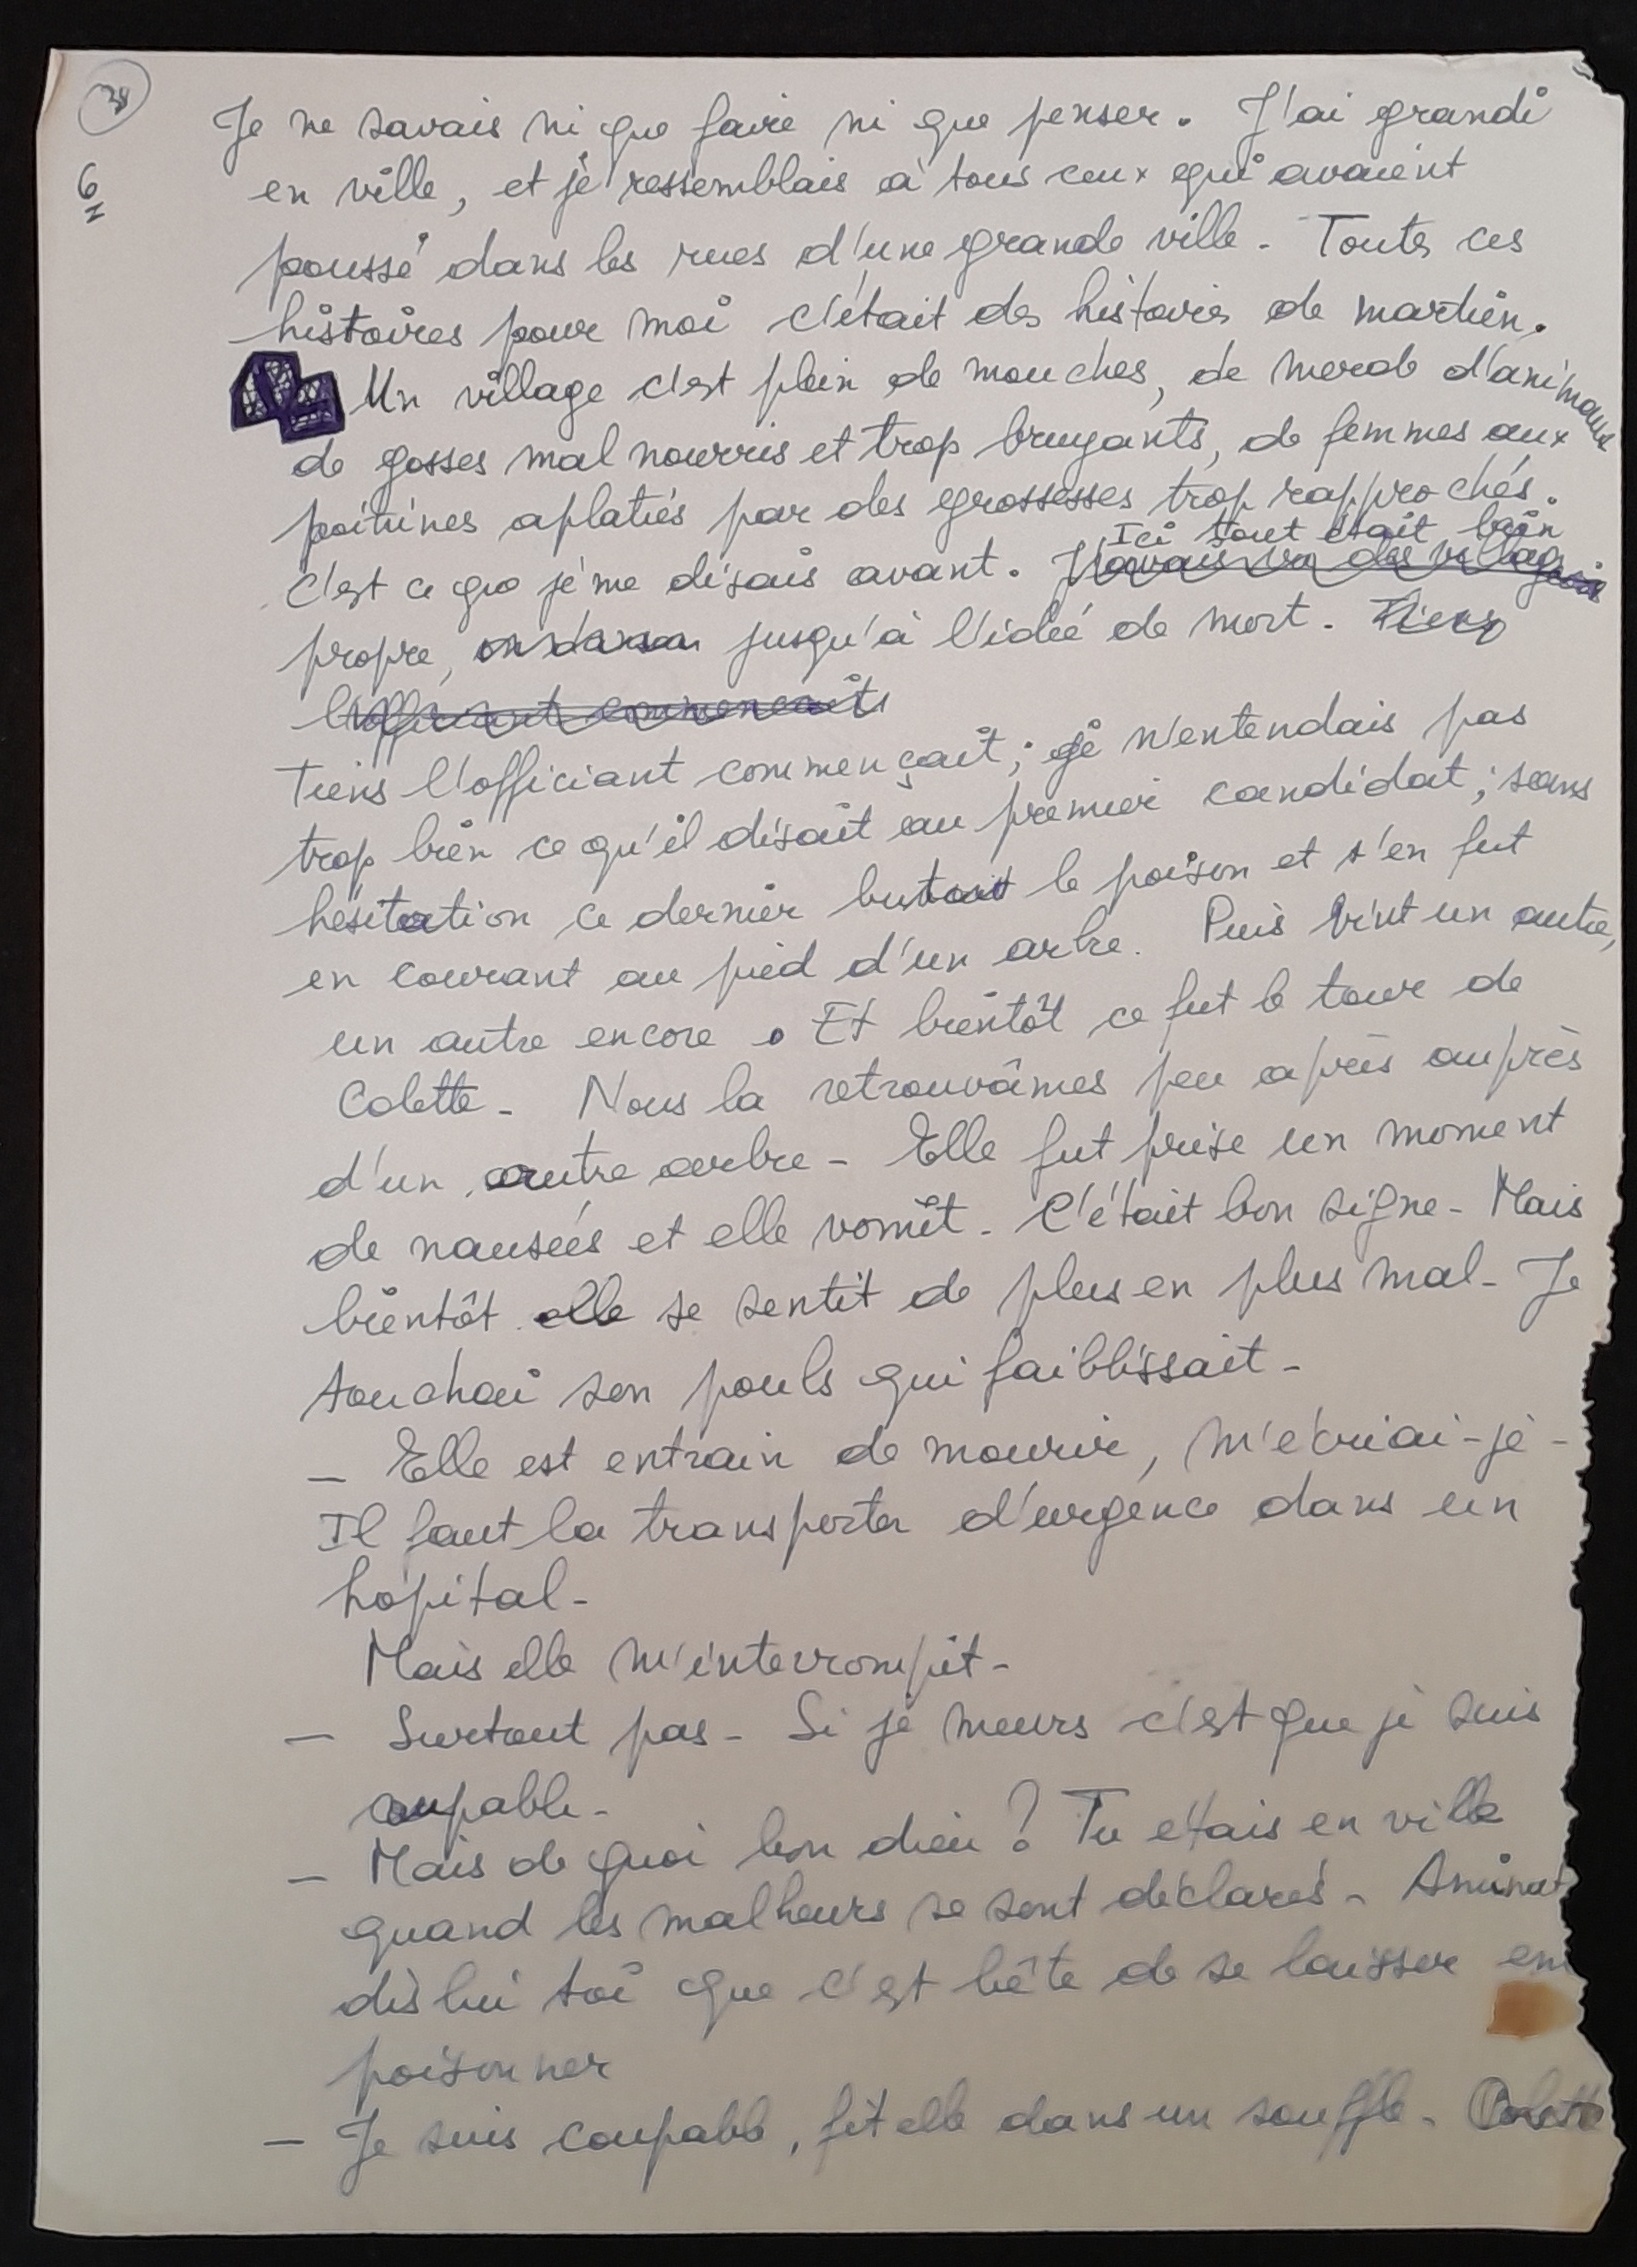 38
6
Je ne savais ni que faire ni que penser. J'ai grandi
en ville, et je ressemblais à tous ceux qui avaient
poussé dans les rues d'une grande ville - Toutes ces
histoires pour moi c'était des histoires de martien.
Un village c'est plein de mouches, de merde d'animaux
de gosses mal nourris et trop bruyants, de femmes aux
poitrines aplaties par des grossesses trop rapprochés.
Ici tout était bien
C'est ce que je me disais avant. J'avais vu des villages
propre, jusqu'à l'idée de mort - Tiens
l'officiant commençait
Tiens l'officiant commençait ; je n'entendais pas
trop bien ce qu'il disait au premier candidat ; sans
hésitation ce dernier but le poison et s'en fut
en courant au pied d'un arbre. Puis vint un autre,
un autre encore. Et bientôt ce fut le tour de
Colette - Nous la retrouvâmes peu après auprès
d'un autre arbre - Elle fut prise un moment
de nausées et elle vomit - C'était bon signe - Mais
bientôt elle se sentit de plus en plus mal - Je
touchai son pouls qui faiblissait -
— Elle est entrain de mourir, m'écriai-je -
Il faut la transporter d'urgence dans un
hôpital -
Mais elle m'interrompit -
— Surtout pas - Si je meurs c'est que je suis
coupable -
— Mais de quoi bon dieu ? Tu étais en ville
quand les malheurs se sont déclarés - Aminat
dis lui toi que c'est bête de se laisser em
poisonner
— Je suis coupable, fit elle dans un souffle - Colette